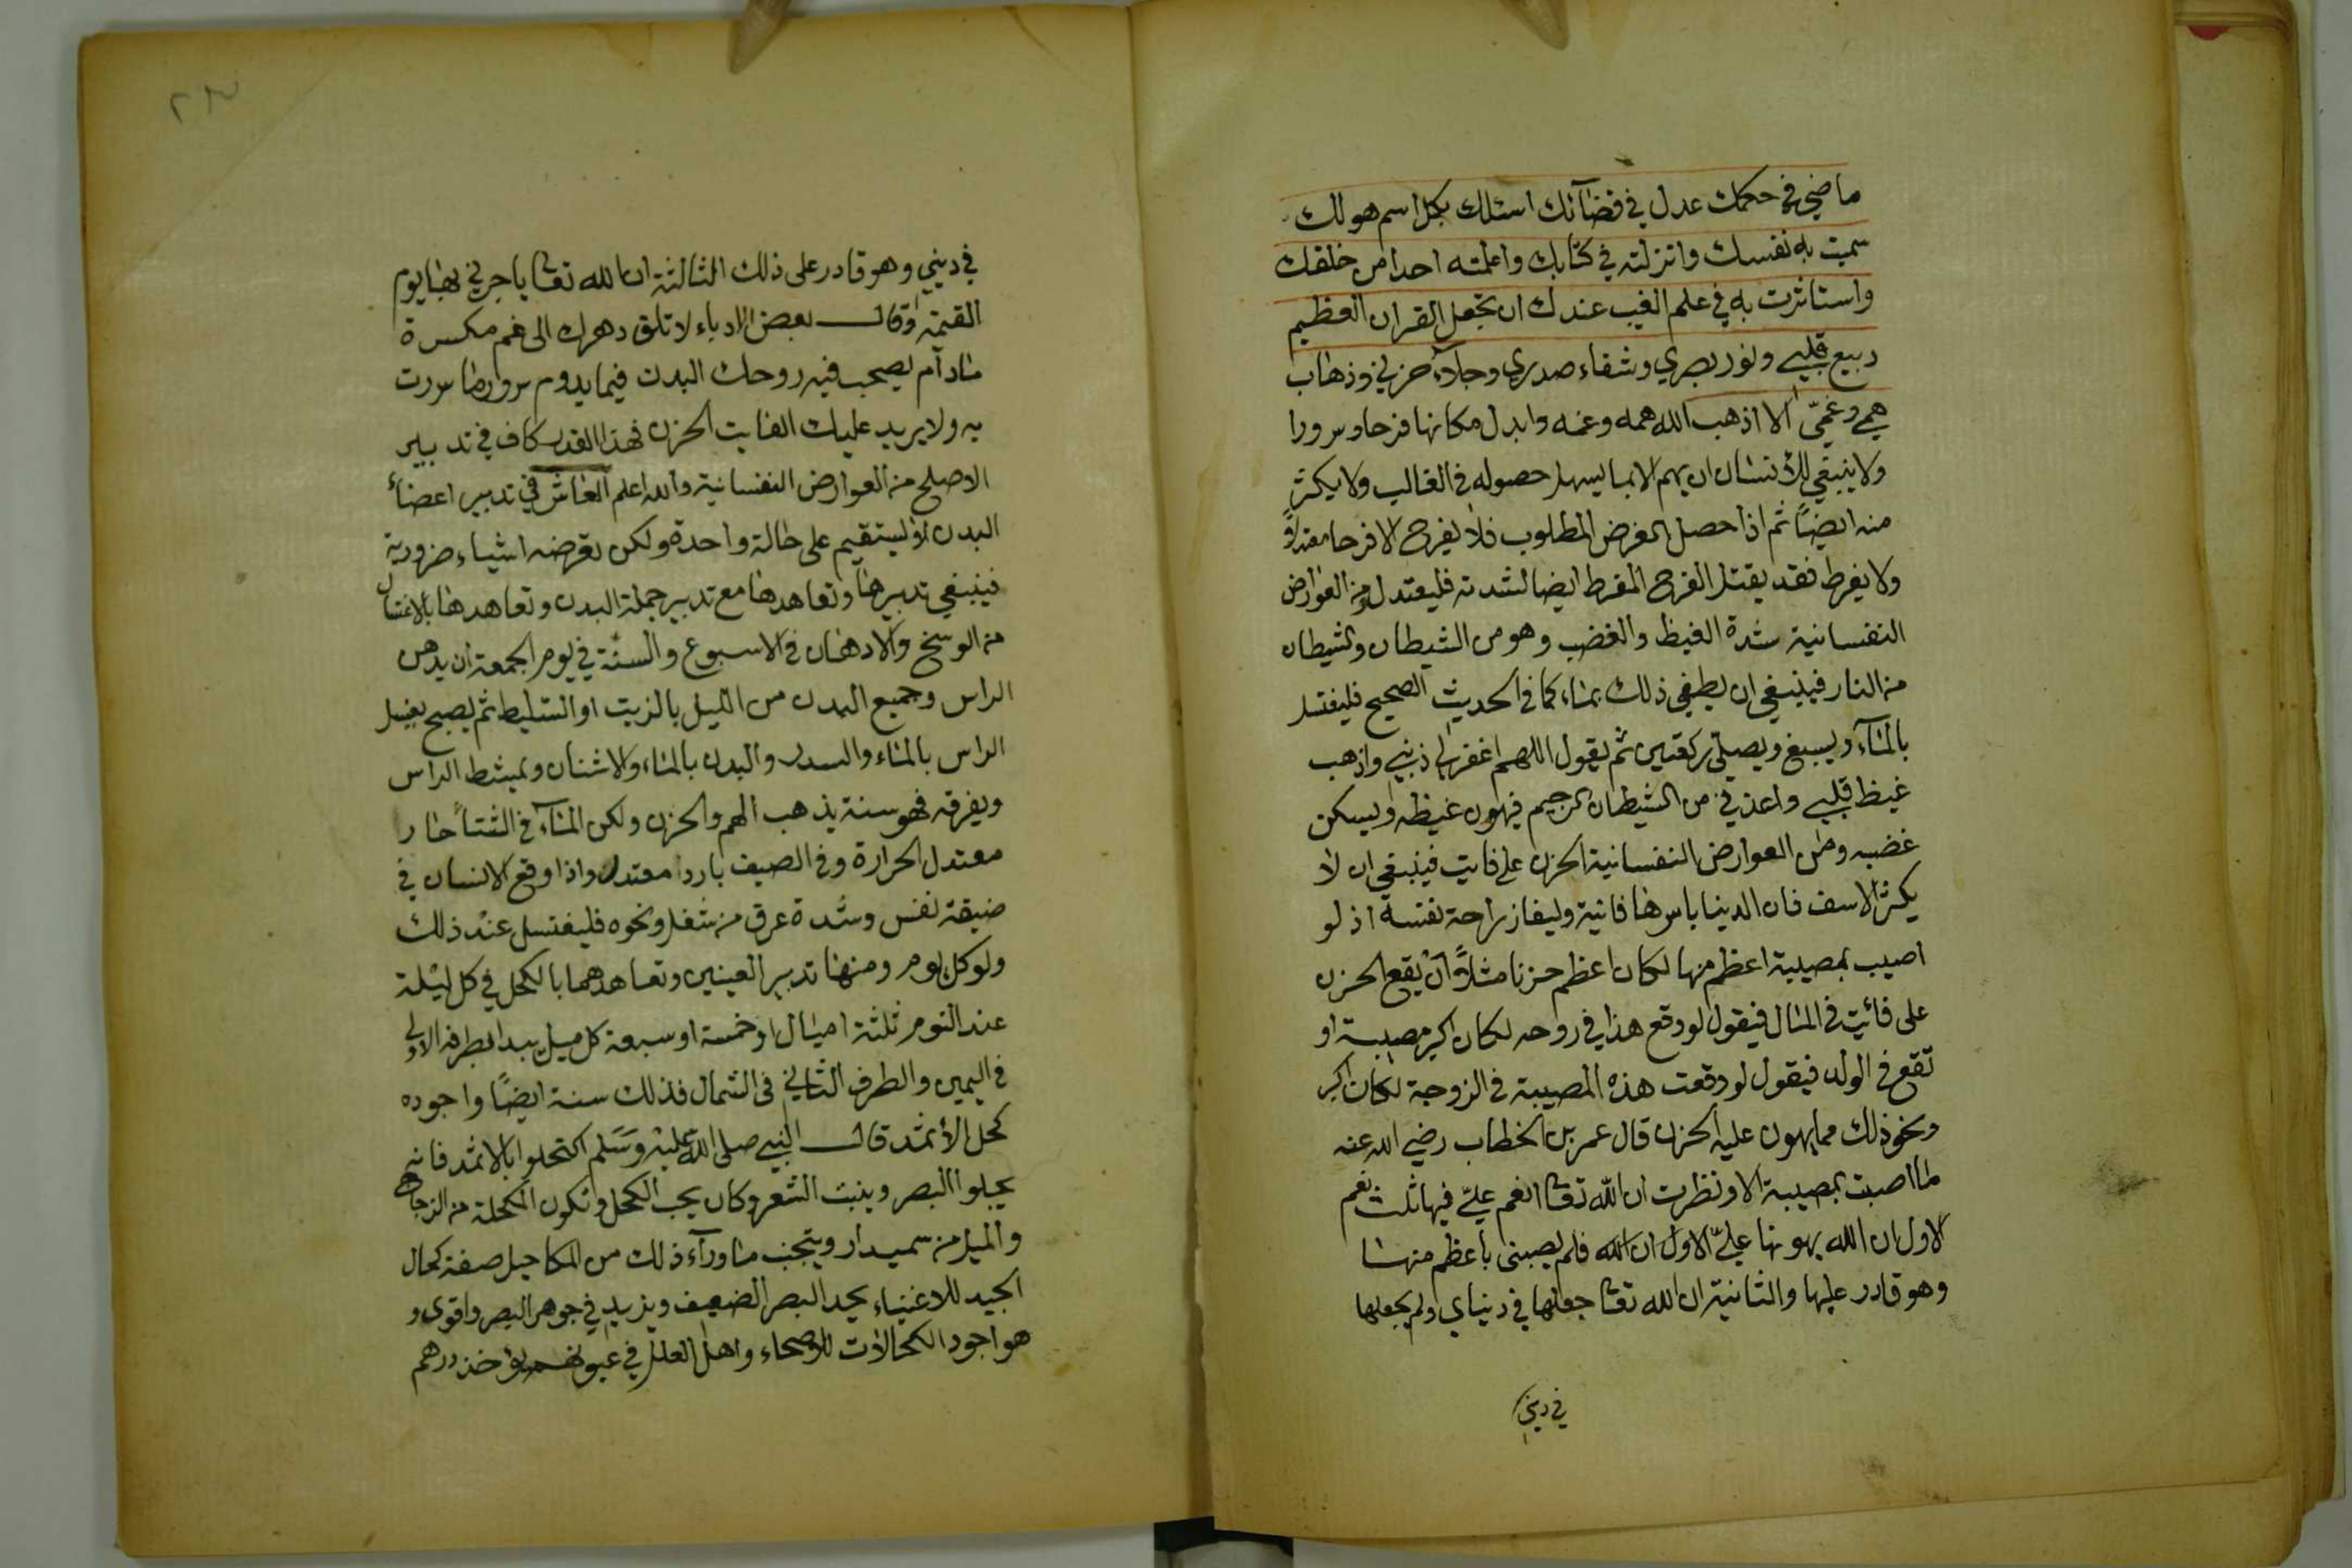 ماضي في حكمك عدل في قضآئك اسئلك بكل اسم هو لك
سميت به نفسك وانزلته في كتابك واعلمته احدا من خلقك
واستاثرت به في علم الغيب عندك ان تجعل القران العظيم
ربيع قلبي ونور بصري وشفاء صدري وجلآء حزني وذهاب
همي وغمّي الا اذهب الله همه وغمه وابدل مكانها فرحا وسرورا
ولا ينبغي للأنسان ان يهم الا بما يسهل حصوله في الغالب ولا يكثر
منه ايضاً ثم اذا حصل الغرض المطلوب فلا يفرح الا فرحا مقتدرا
ولا يفرط فقد يقتل الفرح المفرط ايضا لشدته فليعتدل ومن العوارض
النفسانية شدة الغيظ والغضب وهو من الشيطان والشيطان
من النار فينبغي ان يطفي ذلك بماء كما في الحديث الصحيح فليغتسل
بالمآء ويسبغ ويصلي ركعتين ثم يقول اللهم اغفر لي ذنبي واذهب
غيظ قلبي واعذني من الشيطان الرجيم فيهون غيظه ويسكن
غضبه ومن العوارض النفسانية الحزن على فايت فينبغي ان لا
يكثر الاسف فان الدينا باسرها فانية وليفاز براحة نفسه اذ لو
اصيب بمصيبة اعظم منها لكان اعظم حزنا مثلاً ان يقع الحزن
على فائيت في المال فيقول لو وقع هذا في روحه لكان اكبر مصيبة او
تقع في الولد فيقول لو وقعت هذه المصيبة في الزوجة لكان اكبر
ونحو ذلك مما يهون عليه الحزن قال عمر بن الخطاب رضي الله عنه
ما اصبت بمصيبة الا ونظرت ان الله تعا انعم عليّ فيها ثلث نعم
الاول ان الله يهونها عليّ الاول ان الله فلم يصبنى باعظم منها
وهو قادر عليها والثانية ان الله تعا جعلها في دنياي ولم يجعلها
في ديني
٢٣
في ديني وهو قادر على ذلك الثالثة ان الله تعا ياجرني بها يوم
القيمة وقال بعض الادباء لا تلق دهرك الى غم مكسرة
مادام يصحب فيه روحك البدن فيما يدوم سرور ما سررت
به ولا يريد عليك الفايت الحزن فهذا القدر كاف في تدبير
الاصلح من العوارض النفسانية والله اعلم العاشر في تدبير اعضاء
البدن لا يستقيم على حالة واحدة ولكن تعرضه اشياء ضرورية
فينبغي تدبيرها وتعاهدها مع تدبير جملة البدن وتعاهدها بالاغتسال
من الوسخ والادهان في الاسبوع والسنّة في يوم الجمعة ان يدهن
الراس وجميع البدن من الليل بالزيت او السليط ثم يصبح يغسل
الراس بالماء والسدر والبدن بالماء والاشنان ويمشط الراس
ويفرقه فهو سنة يذهب الهم والحزن ولكن المآء في الشتا حار
معتدل الحرارة وفي الصيف باردا معتدل واذا وقع الانسان في
ضيقة نفس وشدة عرق من شغل ونحوه فليغتسل عند ذلك
ولو كل يوم ومنها تدبير العينين وتعاهدهما بالكحل في كل ليلة
عند النوم ثلثة اميال او خمسة او سبعة كل ميل يبدا بطرفه الاولى
في اليمين والطرف الثاني في الشمال فذلك سنة ايضًا واجوده
كحل الأثمد قال النبي صلى الله عليه وسلم اكتحلوا بالاثمد فانه
يجلوا البصر وينبت الشعر وكان يحب الكحل وتكون المكحلة من الزجاج
والميل من سميدار ويتجنب ماورآء ذلك من المكاحيل صفة كحال
الجيد للاغنياء يحد البصر الضعيف ويزيد في جوهر البصر واقوى و
هو اجود الكحالات للاصحاء واهل العلل في عيونهم يؤاخذ درهم